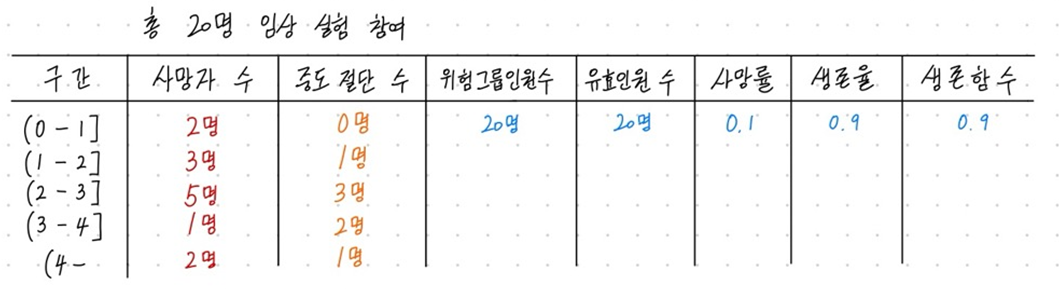 총 20명 임상 실험 참여
구간 사망자 수 중도 절단 수 위험그룹인원수 유효인원 수 사망률 생존율 생존함수
(0 - 1] 2명 0명 20명 20명 0.1 0.9 0.9
(1 - 2] 3명 1명
(2 - 3] 5명 3명
(3 - 4] 1명 2명
(4 - 2명 1명